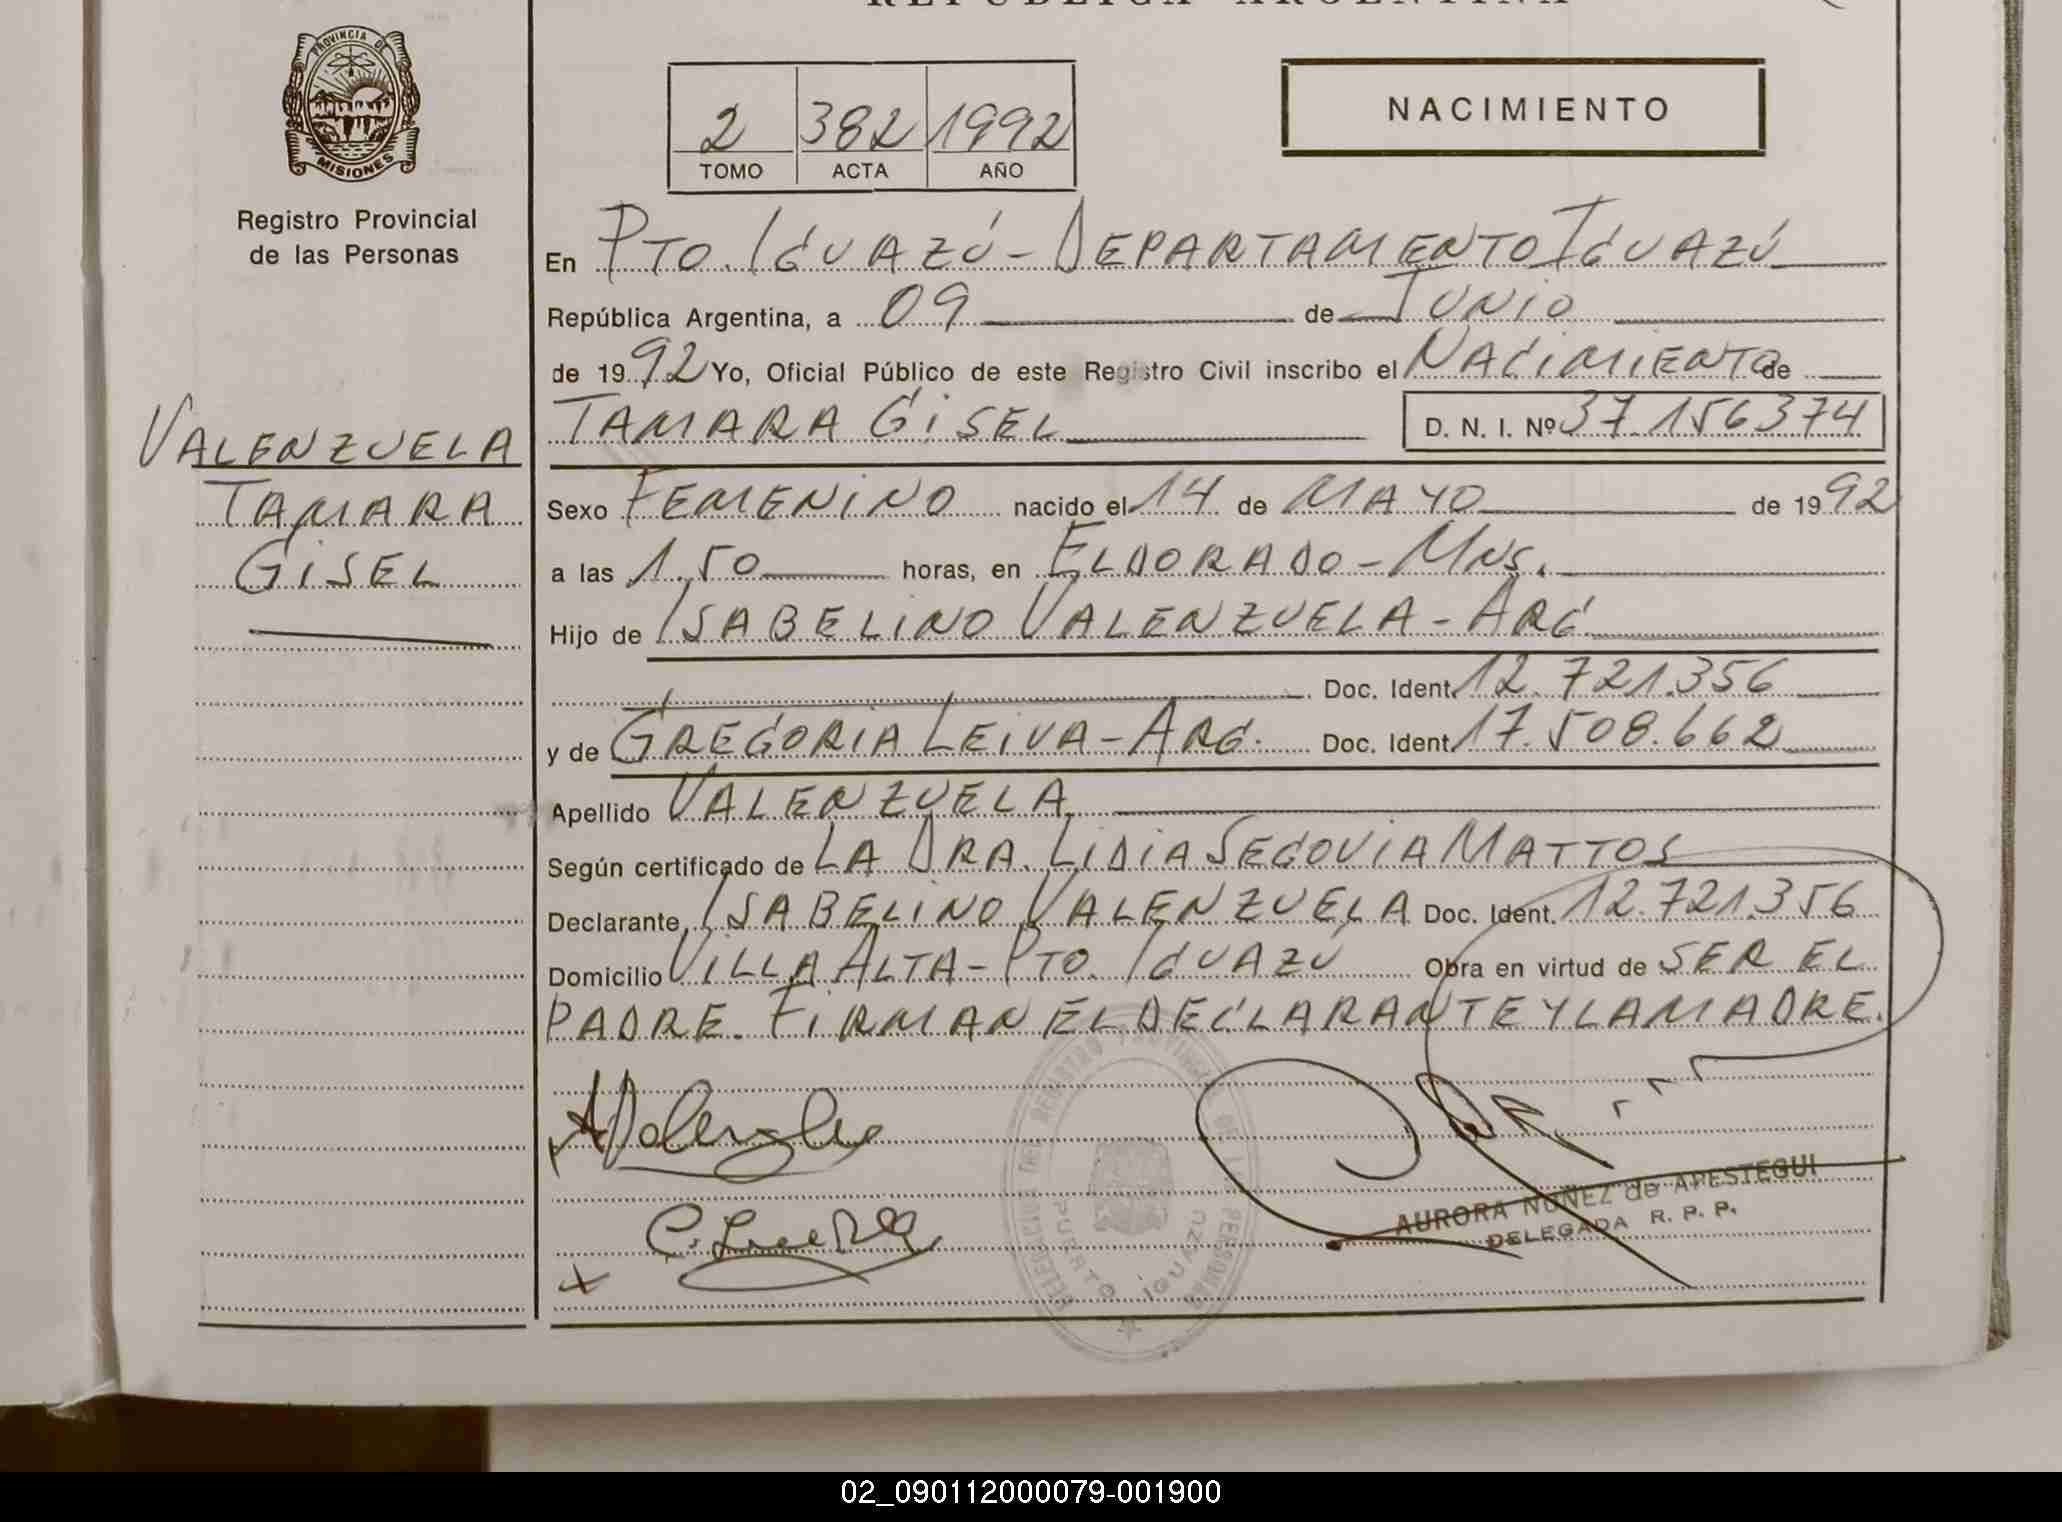 REPUBLICA ARGENTINA
PROVINCIA DE
MISIONES
Registro Provincial
de las Personas
2 382 1992
TOMO ACTA AÑO
NACIMIENTO
En PTO. IGUAZÚ - DEPARTAMENTO IGUAZÚ
República Argentina, a 09 de JUNIO
de 1992 Yo, Oficial Público de este Registro Civil inscribo el NACIMIENTO de
TAMARA GISEL D. N. I. Nº 37.156374
VALENZUELA
TAMARA
GISEL
Sexo FEMENINO nacido el 14 de MAYO de 1992
a las 1.50 horas, en ELDORADO - MNS.
Hijo de ISABELINO VALENZUELA - ARG
Doc. Ident. 12.721.356
y de GREGORIA LEIVA - ARG. Doc. Ident. 17.508.662
Apellido VALENZUELA
Según certificado de LA DRA. LIDIA SEGOVIA MATTOS
Declarante ISABELINO VALENZUELA Doc. Ident. 12.721.356
Domicilio VILLA ALTA - PTO. IGUAZÚ Obra en virtud de SER EL
PADRE. FIRMAN EL DECLARANTE Y LA MADRE.
AURORA NUÑEZ de APESTEGUI
DELEGADA R. P. P.
PUERTO IGUAZU
02_090112000079-001900